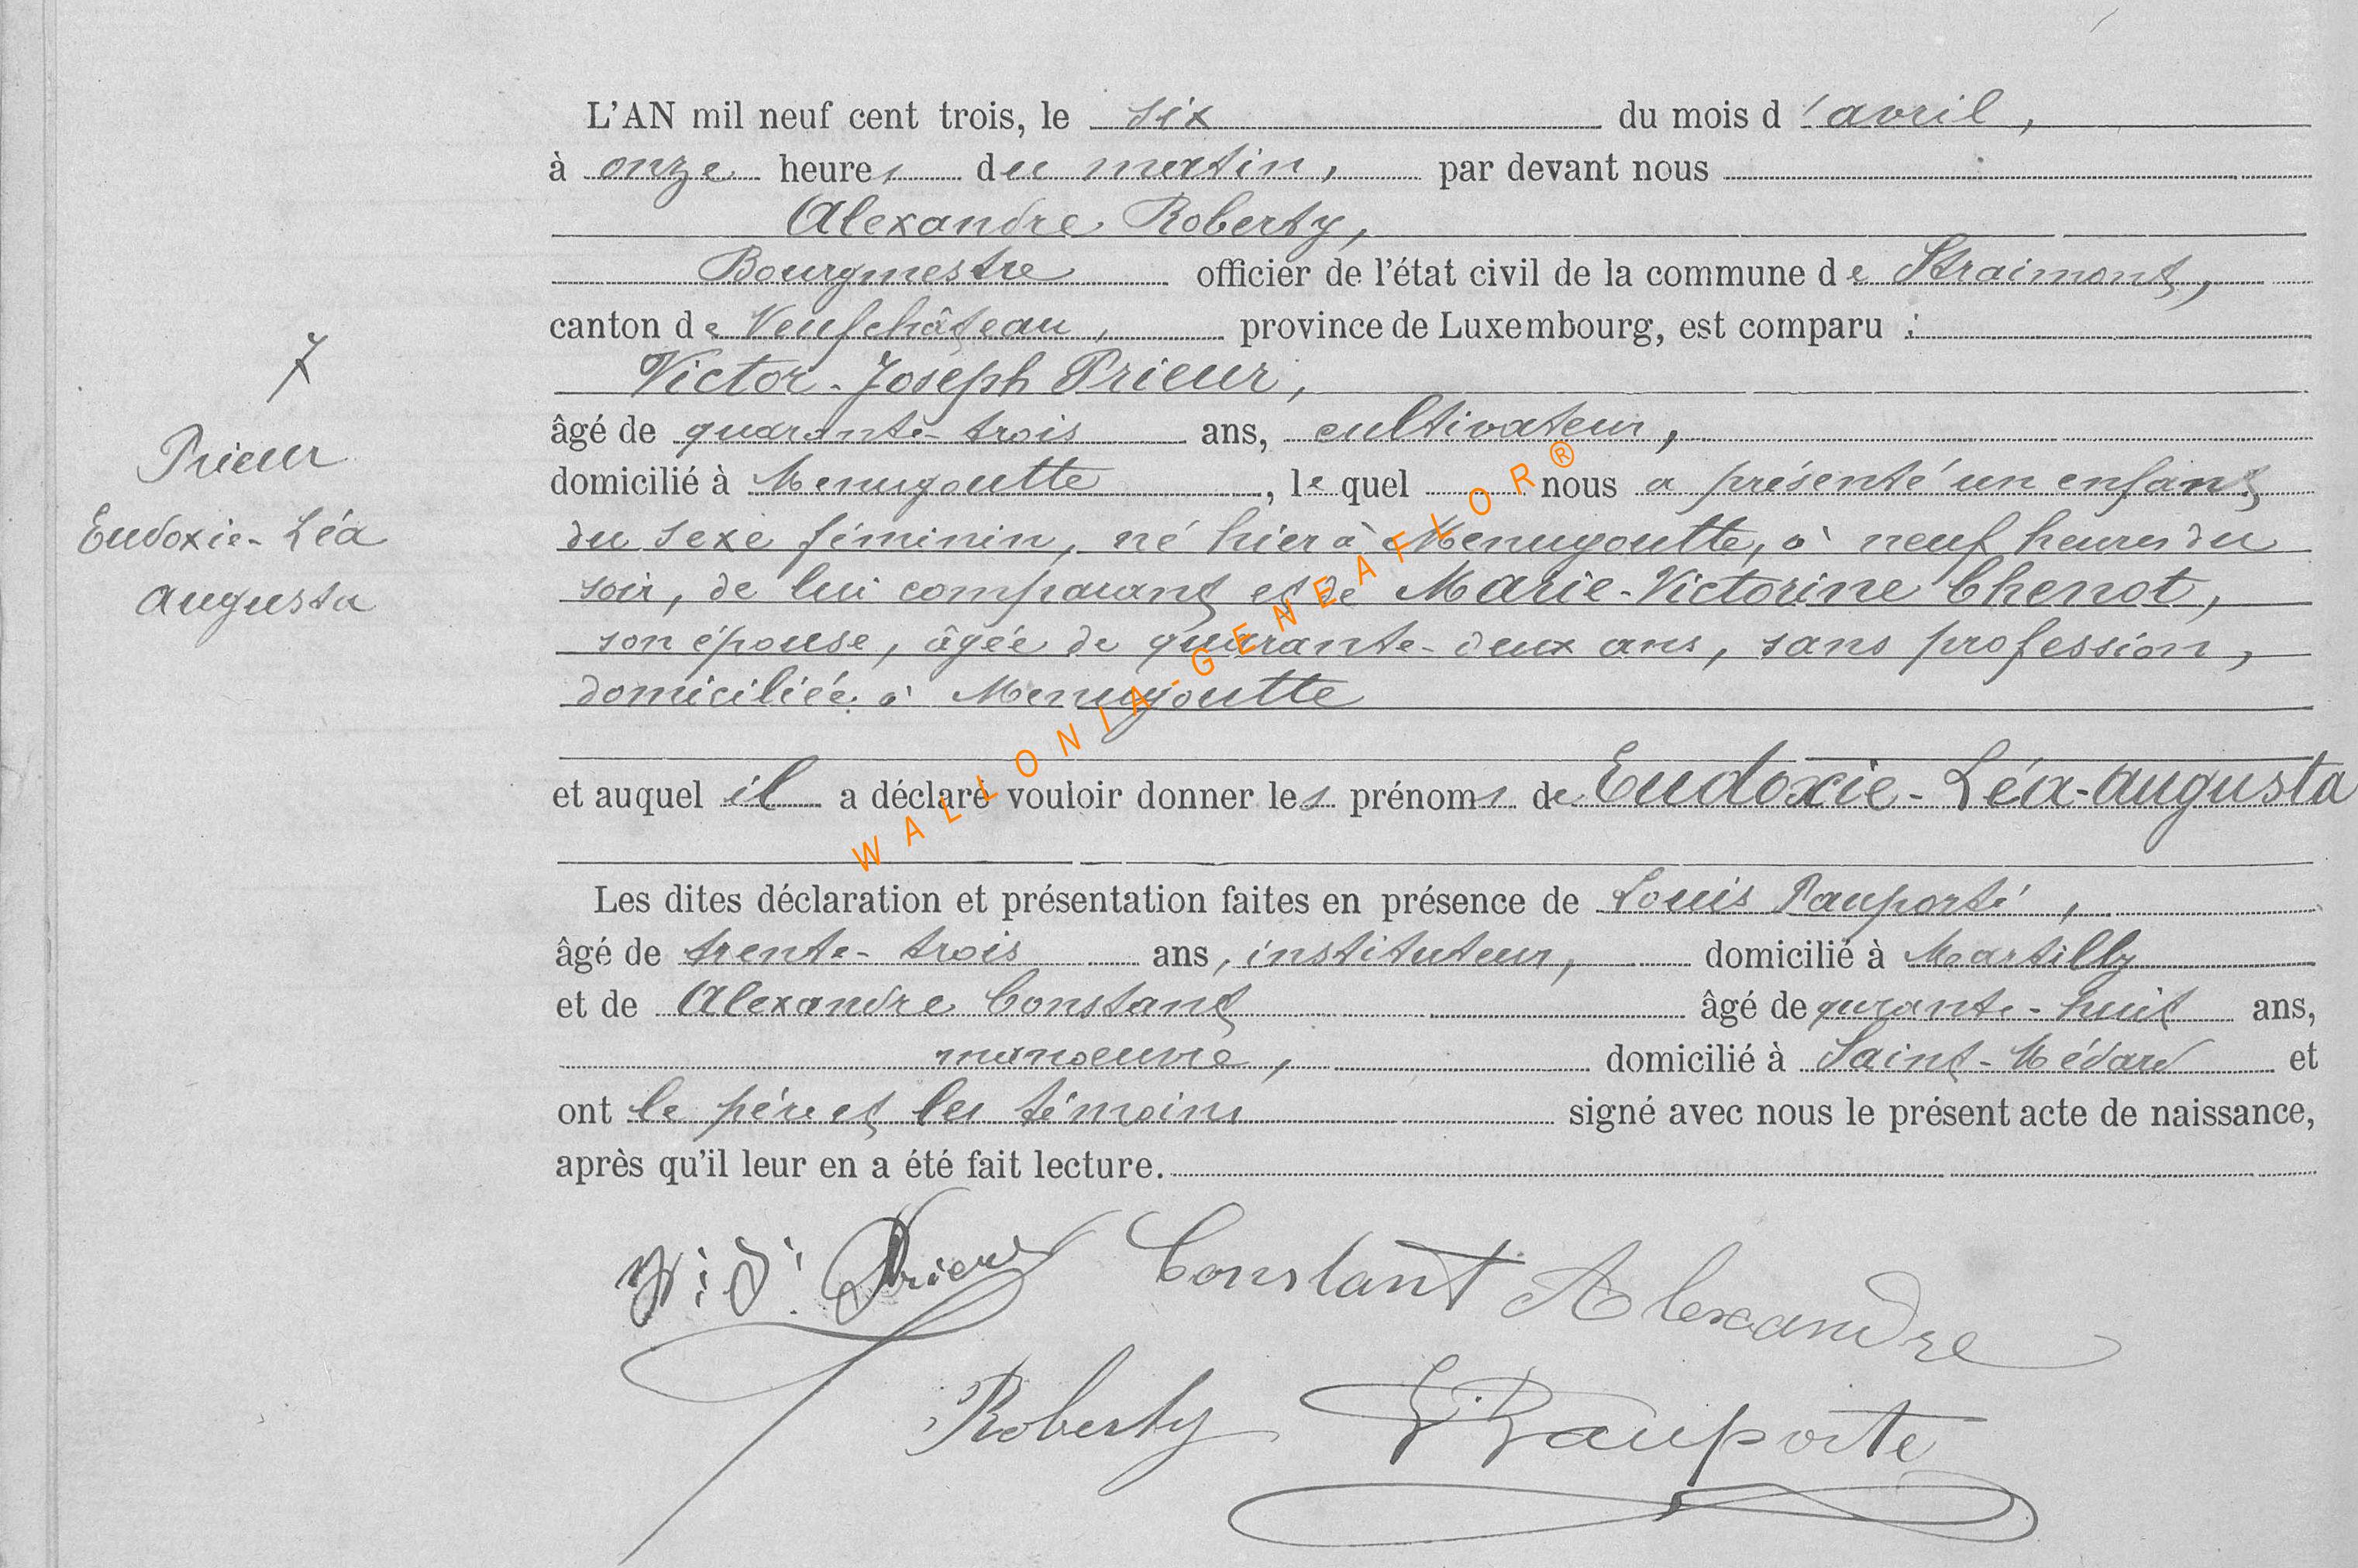 L'AN mil neuf cent trois, le six du mois d'avril,
à onze heures du matin, par devant nous
Alexandre Roberty,
Bourgmestre officier de l'état civil de la commune de Straimont,
canton de Neufchâteau, province de Luxembourg, est comparu :
Victor-Joseph Prieur,
âgé de quarante-trois ans, cultivateur,
domicilié à Menugoutte, lequel nous a présenté un enfant
du sexe féminin, né hier à Menugoutte, à neuf heures du
soir, de lui comparant et de Marie-Victorine Chenot,
son épouse, âgée de quarante-deux ans, sans profession,
domiciliée à Menugoutte
et auquel il a déclaré vouloir donner les prénoms de Eudoxie-Léa-Augusta
Les dites déclaration et présentation faites en présence de Louis Pauporté,
âgé de trente-trois ans, instituteur, domicilié à Martilly
et de Alexandre Constant âgé de qurante-huit ans,
manoeuvre, domicilié à Saint-Médard et
ont le père et les témoins signé avec nous le présent acte de naissance,
après qu'il leur en a été fait lecture.
7
Prieur
Eudoxie-Léa
Augusta
V. J. Prieur Constant Alexandre
Roberty L Pauporte
WALLONIA-GENEAFLOR®